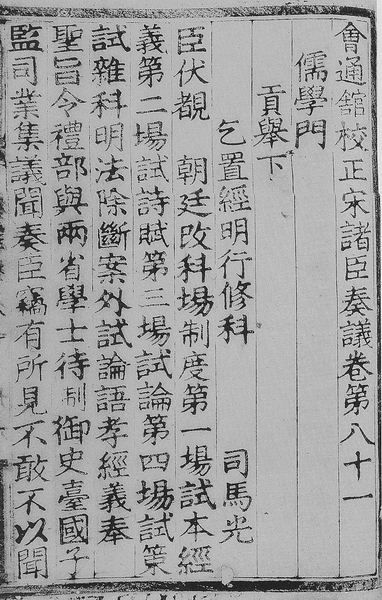 會通舘校正宋諸臣奏議卷第八十一
儒學門
貢舉下
乞置經明行修科 司馬光
臣伏覩 朝廷改科場制度第一場試本經
義第二場試詩賦第三場試論第四場試策
試雜科明法除斷案外試論語孝經義奉
聖旨令禮部與兩省學士待制御史臺國子
監司業集議聞奏臣竊有所見不敢不以聞